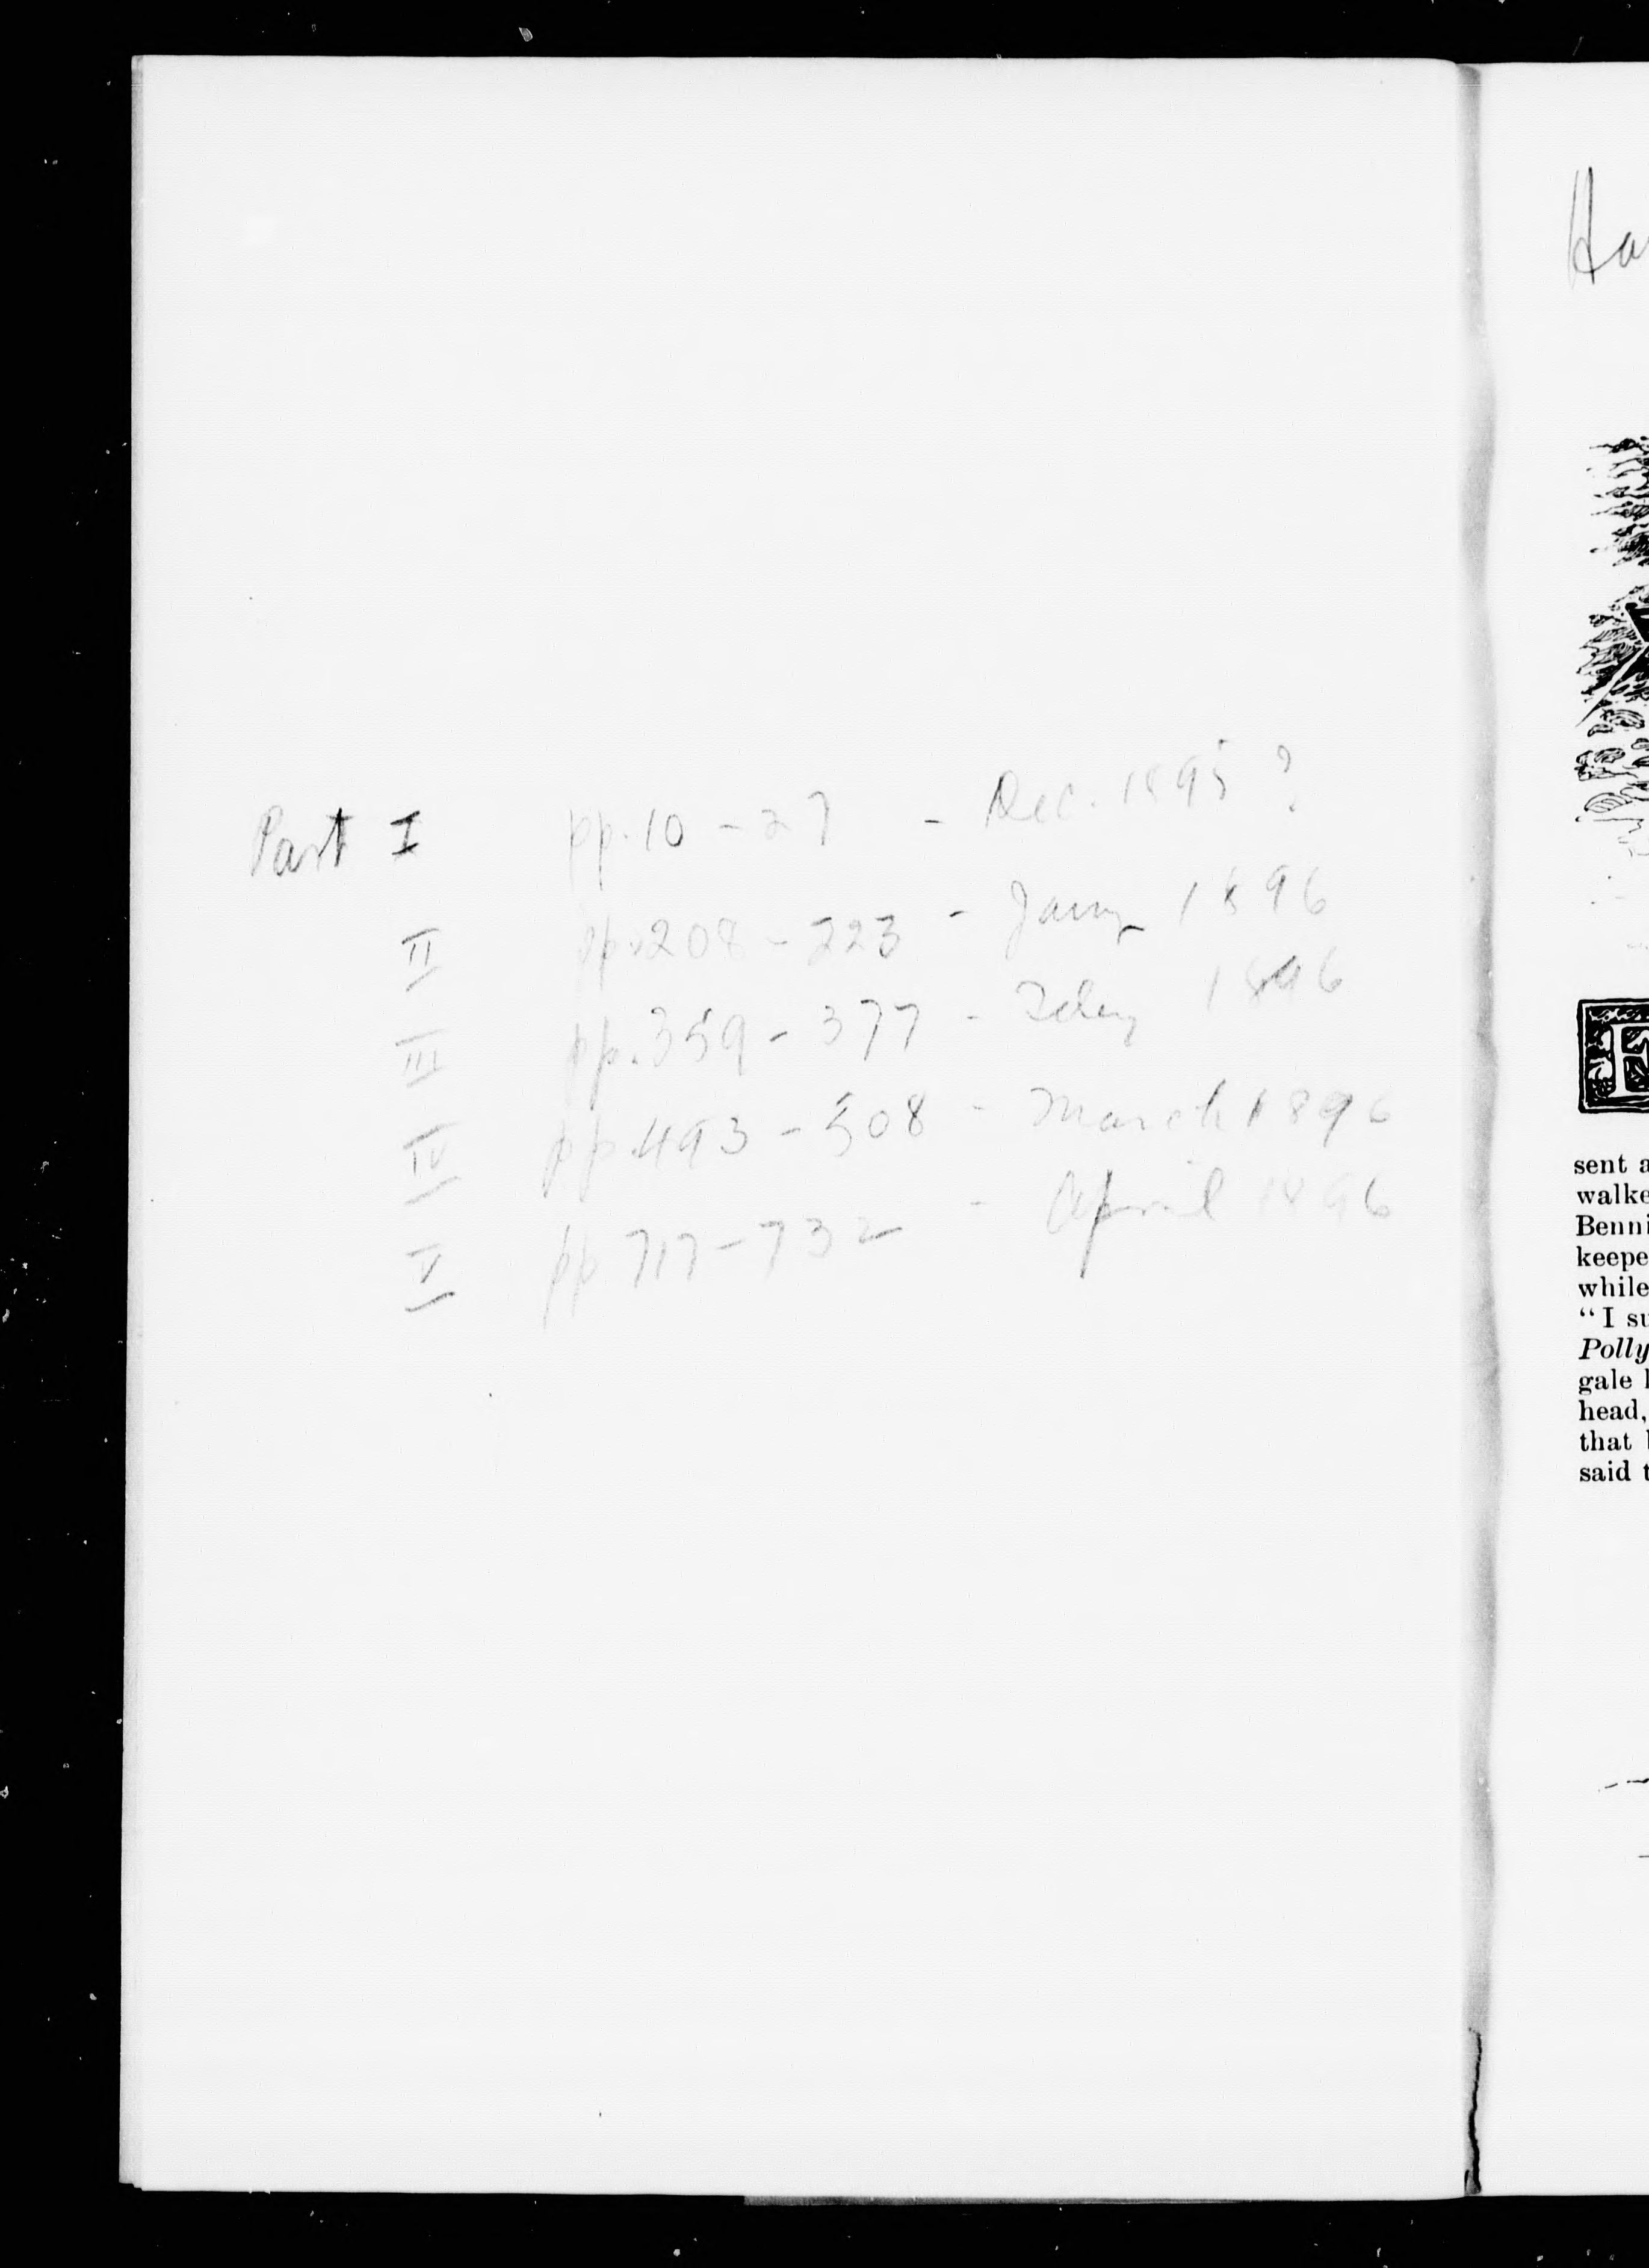 Part I pp. 10 - 27 - Dec. 1895 ?
II pp. 208 - 223 - Jany 1896
III pp. 359 - 377 - Feby 1896
IV pp. 493 - 508 - March 1896
V pp 717 - 732 - April 1896
Ha
sent a
walke
Benni
keepe
while
“I su
Polly
gale
head,
that
said t